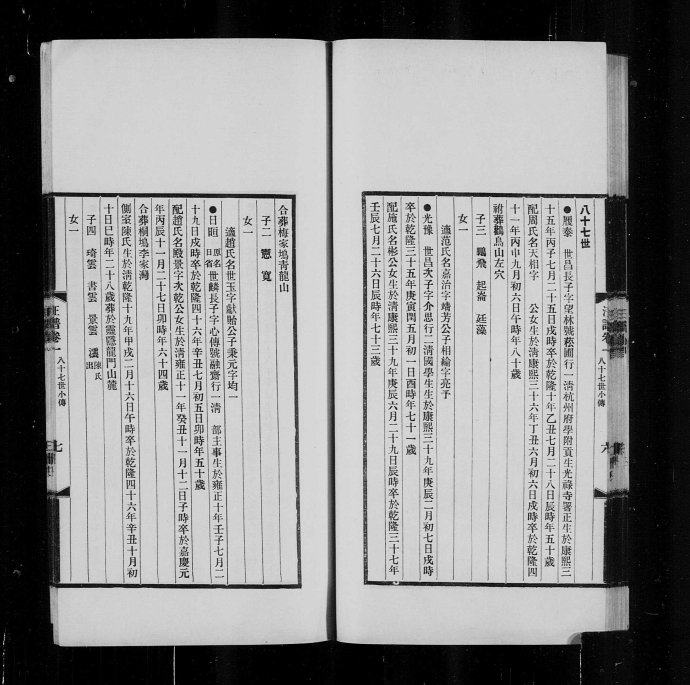 八十七世
●履泰 世昌長子字望林號菘圃行一清杭州府學附貢生光祿寺署正生於康熙三
十五年丙子七月二十五日戌時卒於乾隆十年乙丑七月二十八日辰時年五十歲
配周氏名天相字 公女生於清康熙三十六年丁丑六月初六日戌時卒於乾隆四
十一年丙申九月初六日午時年八十歲
祔葬鶴鳥山左穴
子三 鵬飛 起崙 廷藻
女一
適范氏名嘉治字端芳公子相綸字亮予
●光豫 世昌次子字介思行二清國學生生於康熙三十九年庚辰二月初七日戌時
卒於乾隆三十五年庚寅閏五月初一日酉時年七十一歲
配施氏名彬公女生於清康熙三十九年庚辰六月二十九日辰時卒於乾隆三十七年
壬辰七月二十六日辰時年七十三歲
八十七世小傳
六
合葬梅家塢青龍山
子二 憲 寬
女一
適趙氏名世玉字獻貽公子秉元字均一
●日暄 原名日省 世麟長子字心傳號融齋行一清 部主事生於雍正十年壬子七月二
十九日戌時卒於乾隆四十六年辛丑七月初五日卯時年五十歲
配趙氏名殿景字次乾公女生於清雍正十一年癸丑十一月十二日子時卒於嘉慶元
年丙辰十一月二十七日卯時年六十四歲
合葬桐塢李家灣
側室陳氏生於清乾隆十九年甲戌二月十六日午時卒於乾隆四十六年辛丑十月初
十日巳時年二十八歲葬於靈隱龍門山麓
子四 琦雲 書雲 景雲 瀷 陳氏出
女一
汪譜卷一
八十七世小傳
七